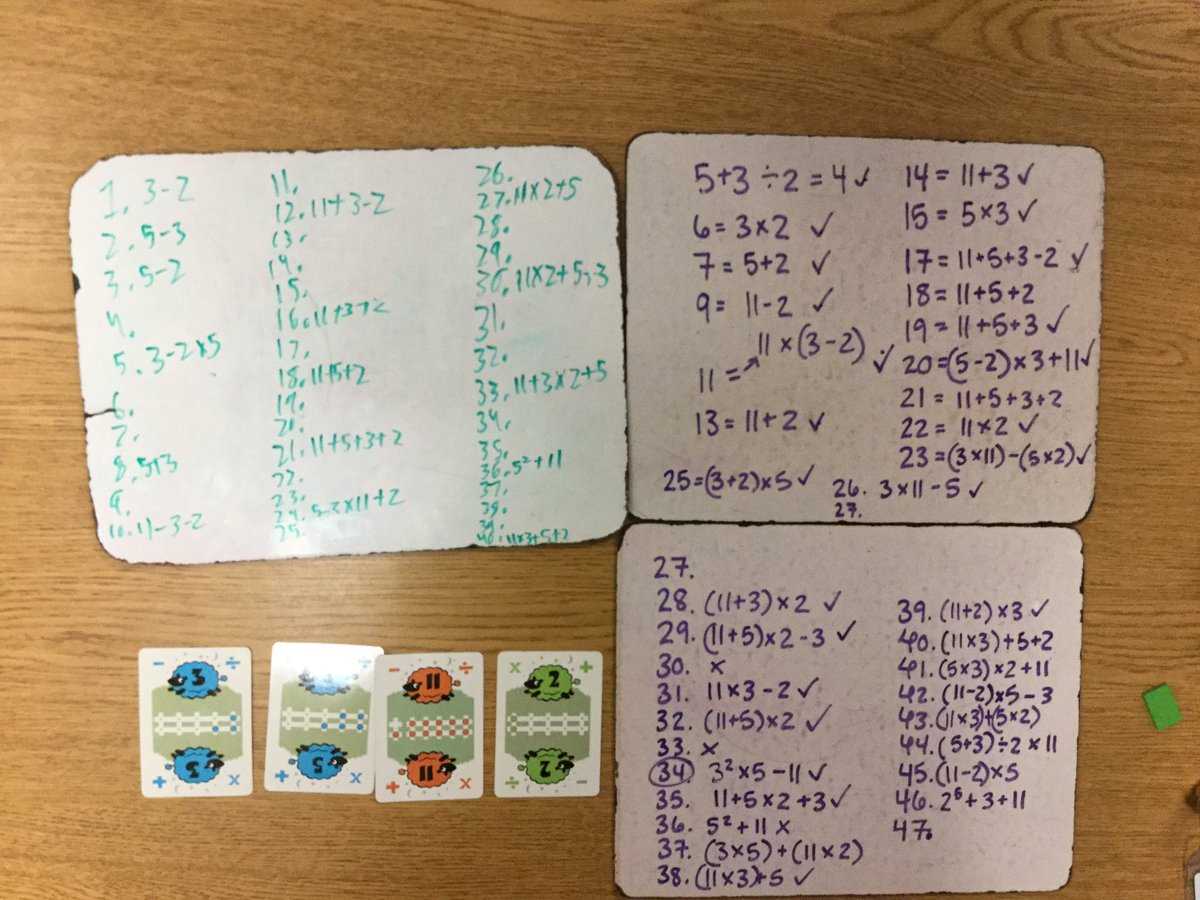 1. 3-2
2. 5-3
3. 5-2
4.
5. 3-2×5
6.
7.
8. 5+3
9.
10. 11-3-2
11.
12. 11+3-2
13.
14.
15.
16. 11+3+2
17.
18. 11+5+2
19.
20.
21. 11+5+3+2
22.
23.
24. 5-3×11+2
25.
26.
27. 11×2+5
28.
29.
30. 11×2+5+3
31.
32.
33. 11+3×2+5
34.
35.
36. 5²+11
37.
38.
39.
40. 11×3+5+2
5+3÷2=4 ✓
6=3×2 ✓
7=5+2 ✓
9= 11-2 ✓
11×(3-2) ✓
11=
13=11+2 ✓
14=11+3 ✓
15=5×3 ✓
17=11+5+3-2 ✓
18=11+5+2
19=11+5+3 ✓
20=(5-2)×3+11 ✓
21=11+5+3+2
22=11×2 ✓
23=(3×11)-(5×2) ✓
25=(3+2)×5 ✓
26. 3×11-5 ✓
27.
27.
28. (11+3)×2 ✓
29. (11+5)×2-3 ✓
30. ×
31. 11×3-2 ✓
32. (11+5)×2 ✓
33. ×
34 3²×5-11 ✓
35. 11+5×2+3 ✓
36. 5²+11 ×
37. (3×5)+(11×2)
38. (11×3)+5 ✓
39. (11+2)×3 ✓
40. (11×3)+5+2
41. (5×3)×2+11
42. (11-2)×5-3
43. (11×3)+(5×2)
44. (5+3)÷2×11
45. (11-2)×5
46. 2⁵+3+11
47.
- ÷
3
3
+ ×
÷
5
+ ×
- ÷
11
11
+ ×
× +
2
2
÷ -